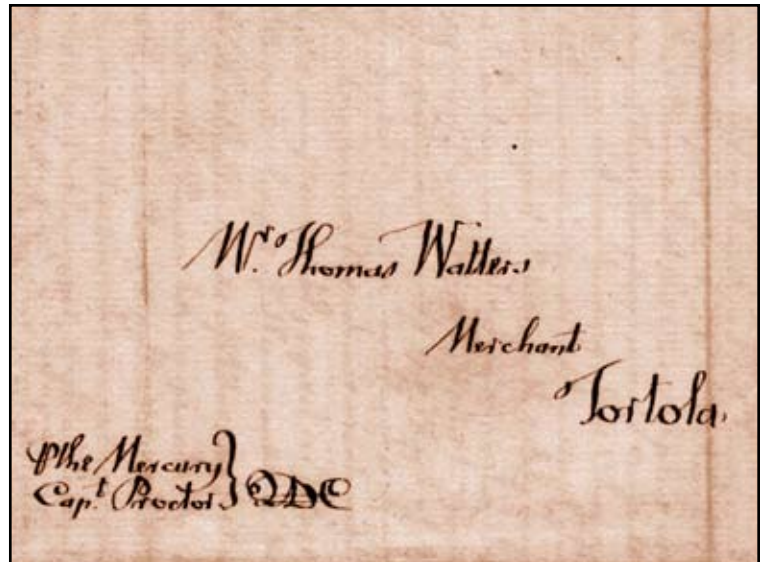 Mr. Thomas Walters
Merchant
Tortola.
⅌ the Mercury
Capt. Proctor } QDC